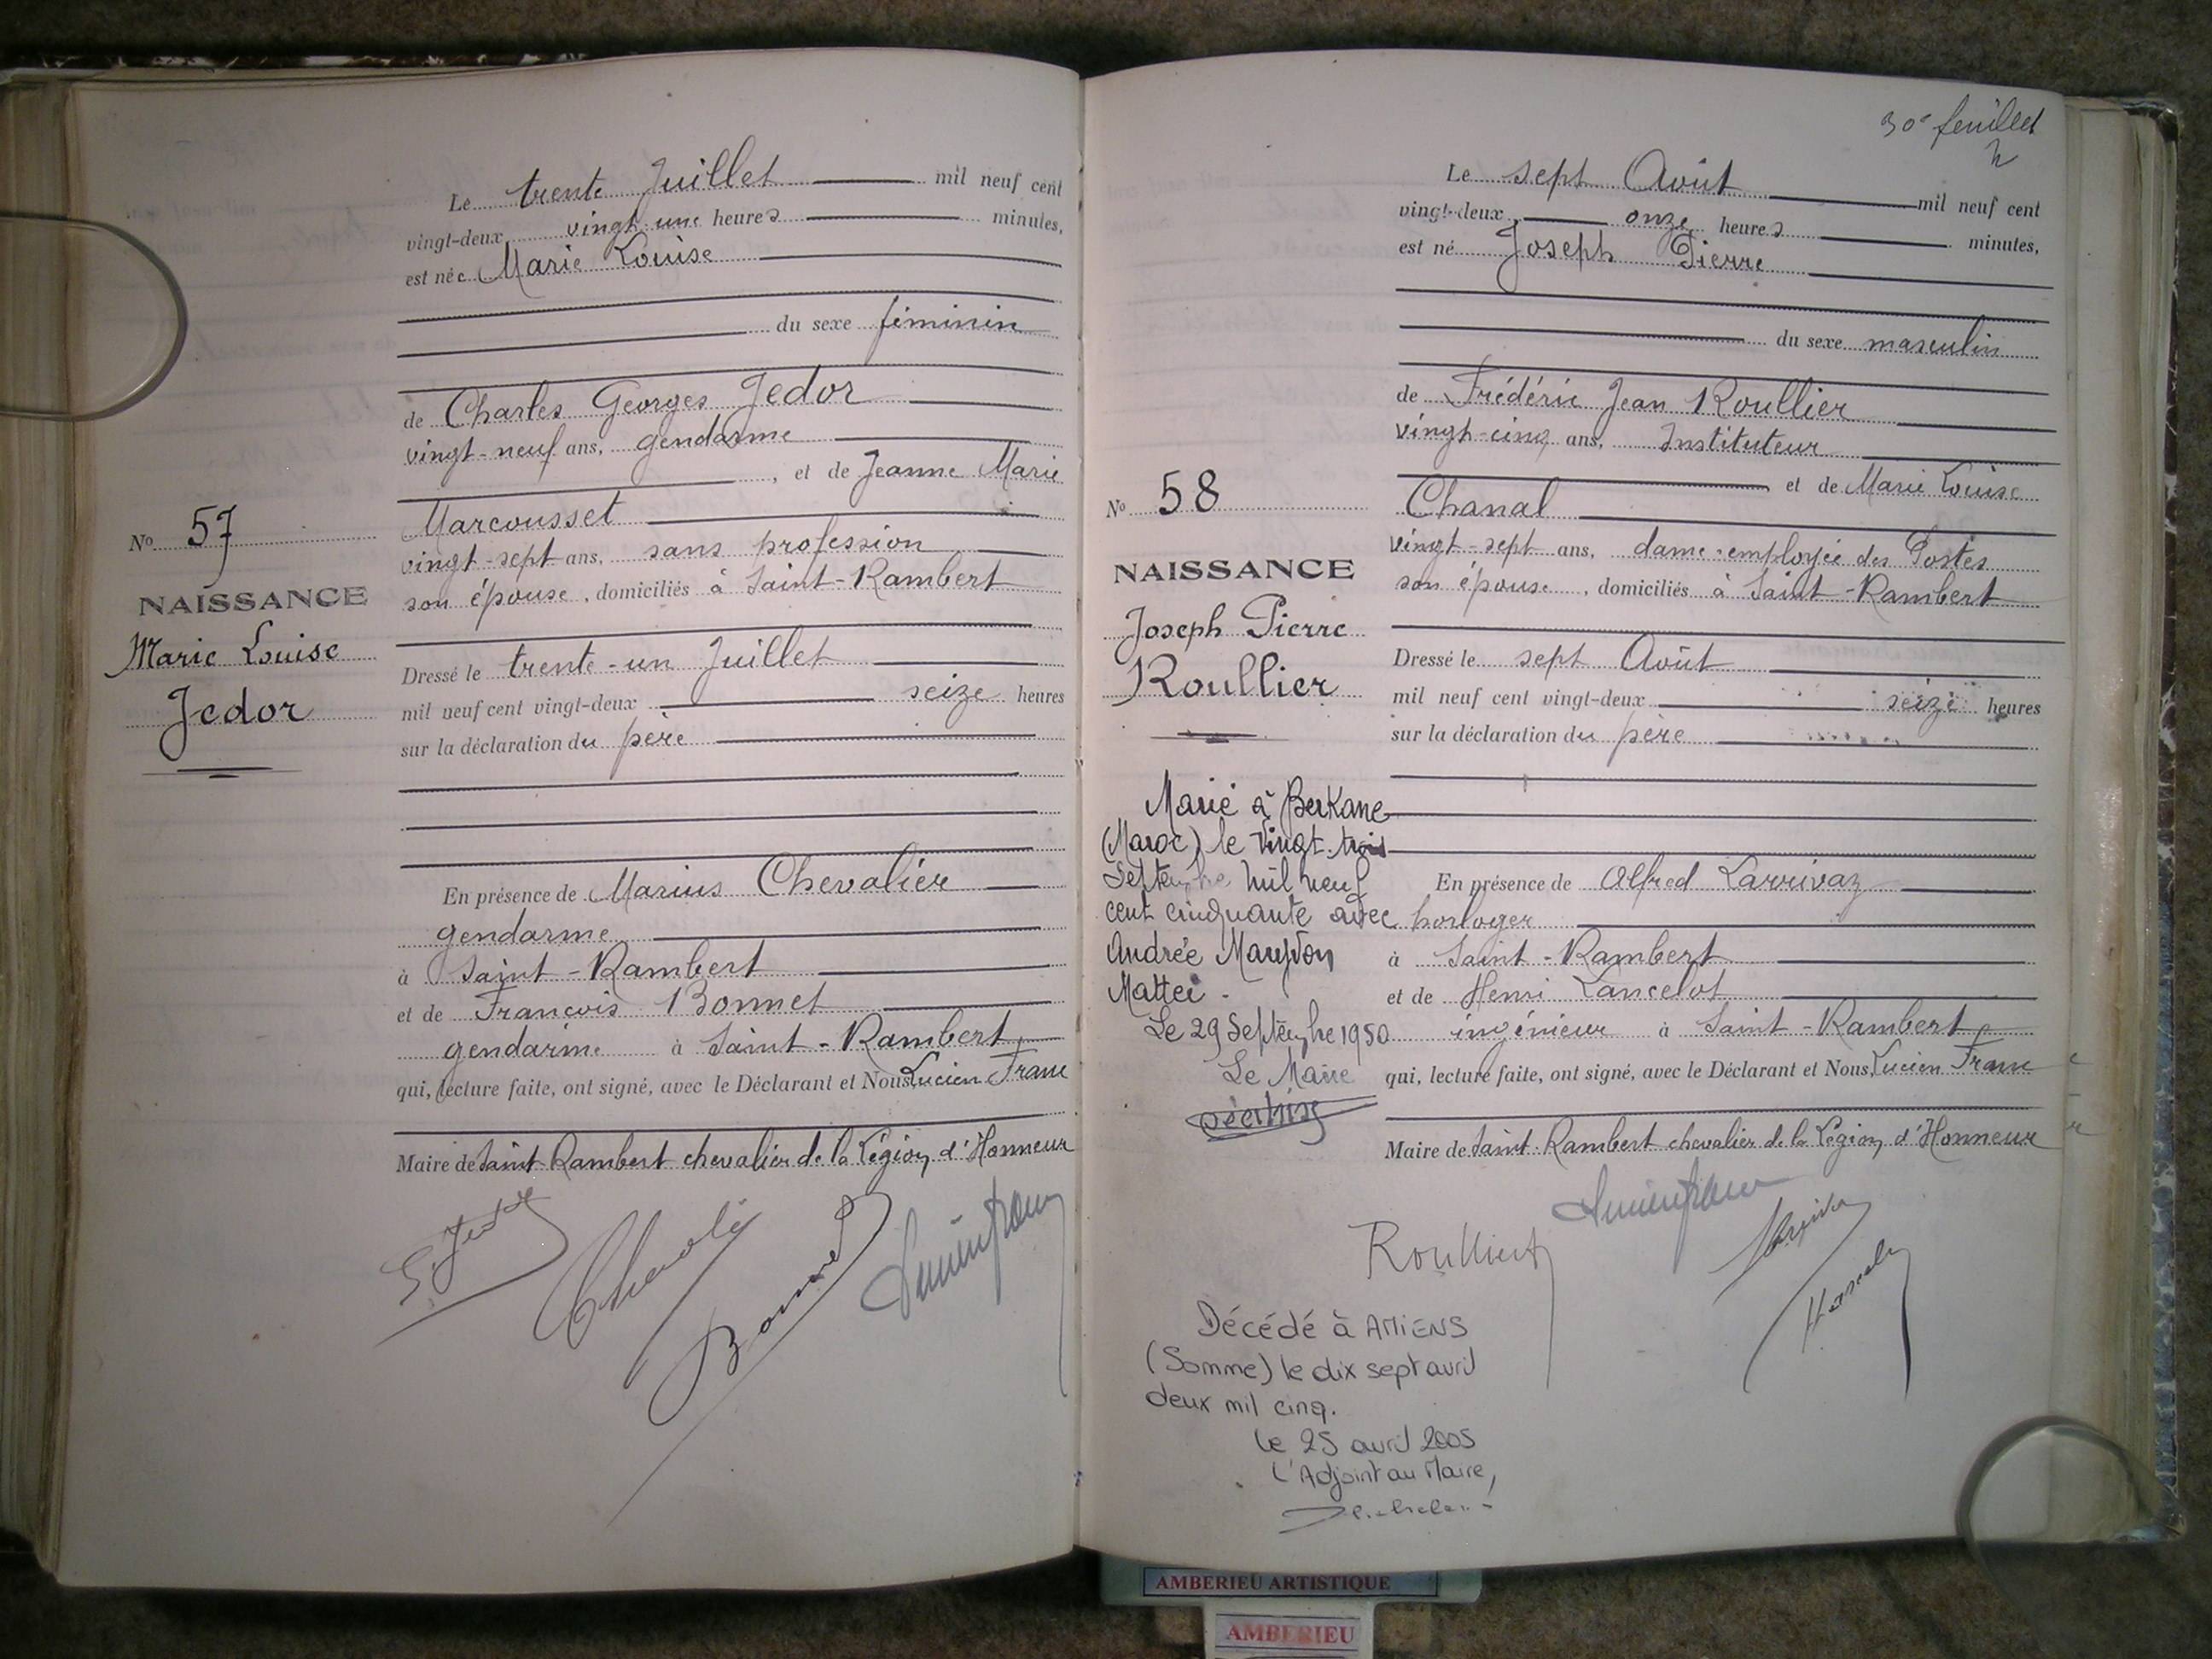 Le trente Juillet mil neuf cent
vingt-deux, vingt-une heures minutes,
est née Marie Louise
du sexe féminin
de Charles Georges Jedor
vingt-neuf ans, gendarme
, et de Jeanne Marie
Marcousset
vingt-sept ans, sans profession
son épouse, domiciliés à Saint-Rambert
Dressé le trente-un Juillet
mil neuf cent vingt-deux seize heures
sur la déclaration du père
En présence de Marius Chevalier
gendarme
à Saint-Rambert
et de François Bonnet
gendarme à Saint-Rambert
qui, lecture faite, ont signé, avec le Déclarant et Nous, Lucien Franc
Maire de Saint-Rambert chevalier de la Légion d'Honneur
Bonnet
No 57
NAISSANCE
Marie Louise
Jedor
30e feuillet
Le sept Août mil neuf cent
vingt-deux, onze heures minutes,
est né Joseph Pierre
du sexe masculin
de Frédéric Jean Roullier
vingt-cinq ans, Instituteur
et de Marie Louise
Chanal
vingt-sept ans, dame-employée des Postes
son épouse, domiciliés à Saint-Rambert
Dressé le sept Août
mil neuf cent vingt-deux seize heures
sur la déclaration du père
En présence de Alfred Larrivaz
horloger
à Saint-Rambert
et de Henri Lancelot
ingénieur à Saint-Rambert
qui, lecture faite, ont signé, avec le Déclarant et Nous, Lucien Franc
Maire de Saint-Rambert chevalier de la Légion d'Honneur
Roullier
No 58
NAISSANCE
Joseph Pierre
Roullier
Marié à Berkane
(Maroc) le vingt-trois
Septembre mil neuf
cent cinquante avec
Andrée
Mattei.
Le 29 Septembre 1950
Le Maire
Décédé à AMIENS
(Somme) le dix sept avril
deux mil cinq.
le 25 avril 2005
L'Adjoint au Maire,
AMBERIEU ARTISTIQUE
AMBERIEU